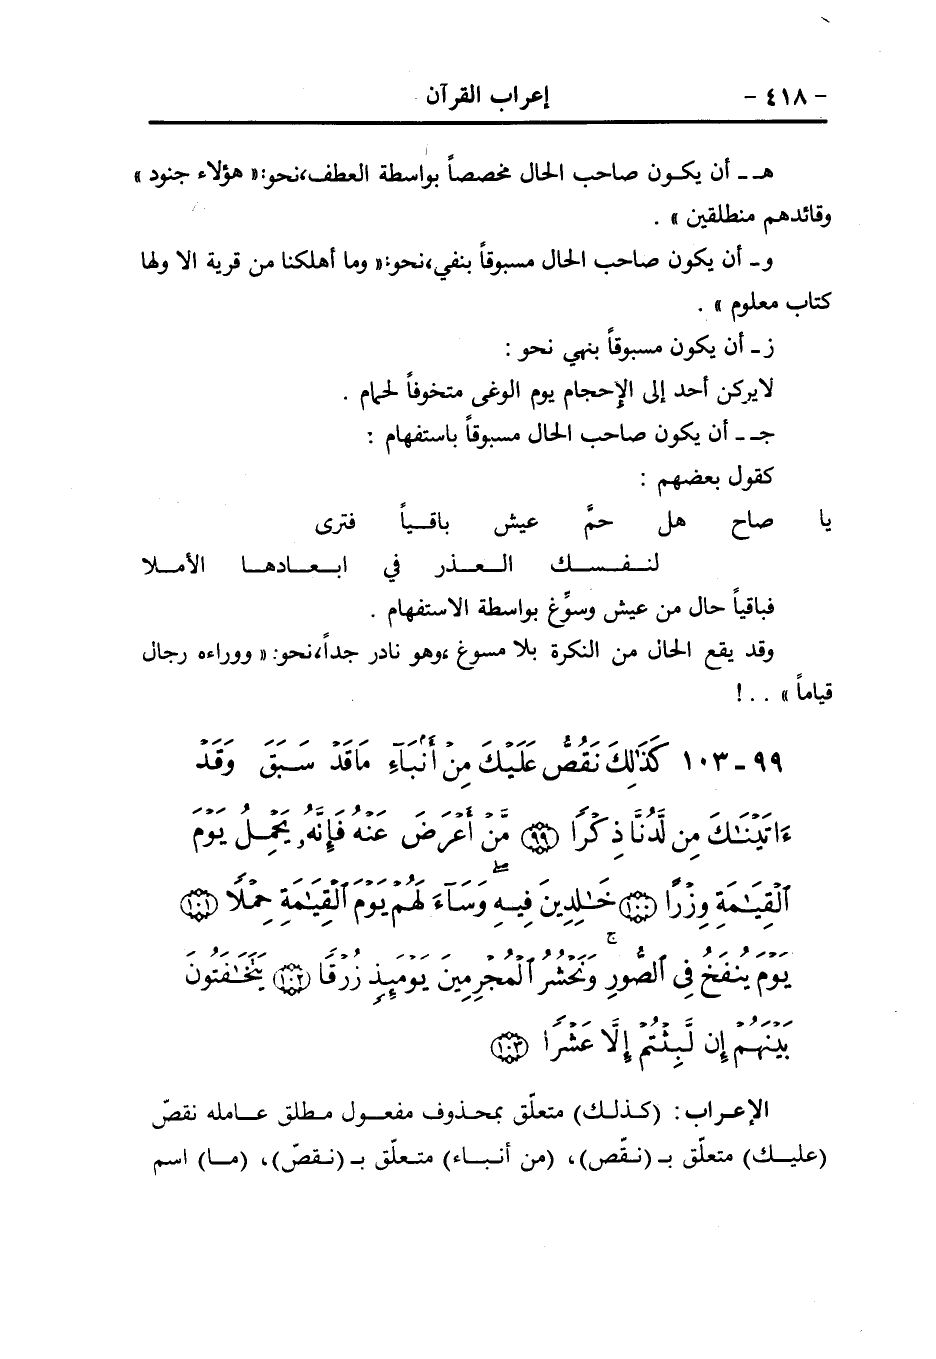 - ٤١٨ - إعراب القرآن
هـ - أن يكون صاحب الحال مخصصاً بواسطة العطف،نحو:« هؤلاء جنود »
وقائدهم منطلقين » .
و - أن يكون صاحب الحال مسبوقاً بنفي،نحو:« وما أهلكنا من قرية الا ولها
كتاب معلوم » .
ز - أن يكون مسبوقاً بنهي نحو :
لايركن أحد إلى الإحجام يوم الوغى متخوفاً لحمام .
جـ - أن يكون صاحب الحال مسبوقاً باستفهام :
كقول بعضهم :
يا صاح هل حمَّ عيش باقـياً فترى
لنفسك العذر في ابعادها الأملا
فباقياً حال من عيش وسوِّغ بواسطة الاستفهام .
وقد يقع الحال من النكرة بلا مسوغ ،وهو نادر جداً،نحو:« ووراءه رجال
قياماً » . . !
٩٩ - ١٠٣ كَذَٰلِكَ نَقُصُّ عَلَيْكَ مِنْ أَنۢبَآءِ مَا قَدْ سَبَقَ وَقَدْ
ءَاتَيْنَٰكَ مِن لَّدُنَّا ذِكْرًا ﴿٩٩﴾ مَّنْ أَعْرَضَ عَنْهُ فَإِنَّهُۥ يَحْمِلُ يَوْمَ
ٱلْقِيَٰمَةِ وِزْرًا ﴿١٠٠﴾ خَٰلِدِينَ فِيهِ ۖ وَسَآءَ لَهُمْ يَوْمَ ٱلْقِيَٰمَةِ حِمْلًا ﴿١٠١﴾
يَوْمَ يُنفَخُ فِى ٱلصُّورِ ۚ وَنَحْشُرُ ٱلْمُجْرِمِينَ يَوْمَئِذٍ زُرْقًا ﴿١٠٢﴾ يَتَخَٰفَتُونَ
بَيْنَهُمْ إِن لَّبِثْتُمْ إِلَّا عَشْرًا ﴿١٠٣﴾
الإعراب : (كـذلـك) متعلّق بمحذوف مفعول مطلق عـامله نقصّ
(عليـك) متعلّق بـ (نـقّص)، (من أنبـاء) متـعلّق بـ (نـقصّ)، (مـا) اسم